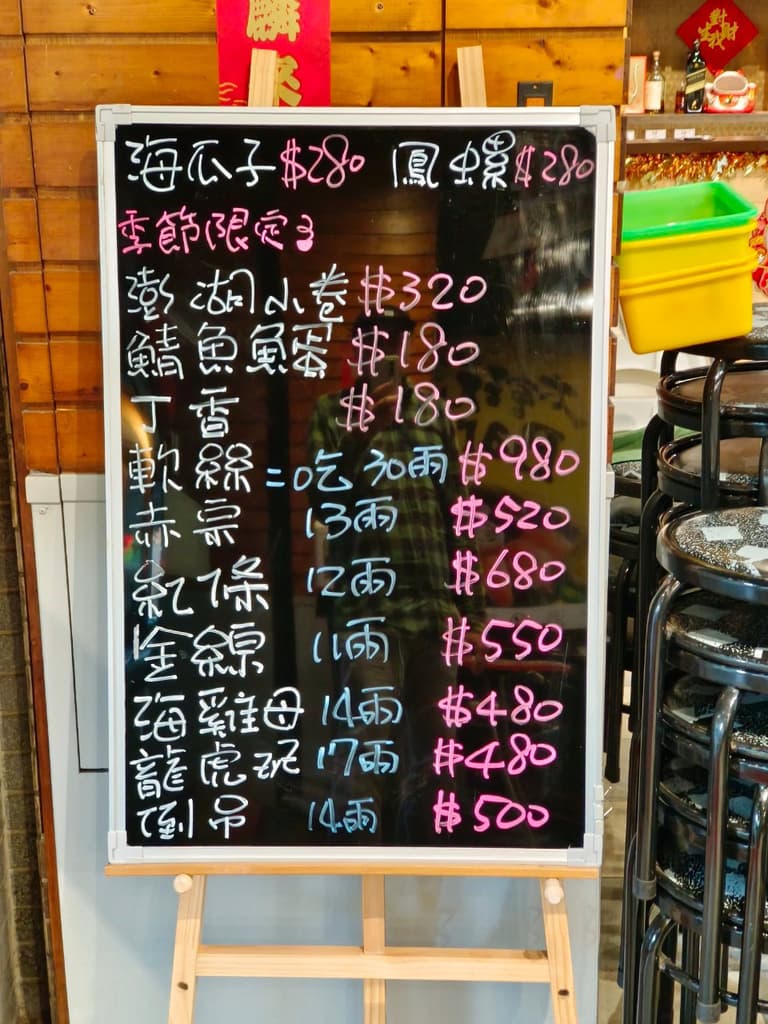 海瓜子$280 鳳螺$280
季節限定:
澎湖小卷$320
鯖魚魚蛋$180
丁香 $180
軟絲=吃30兩$980
赤宗 13兩 $520
紅條 12兩 $680
金線 11兩 $550
海雞母 14兩 $480
龍虎班 17兩 $480
倒吊 14兩 $500